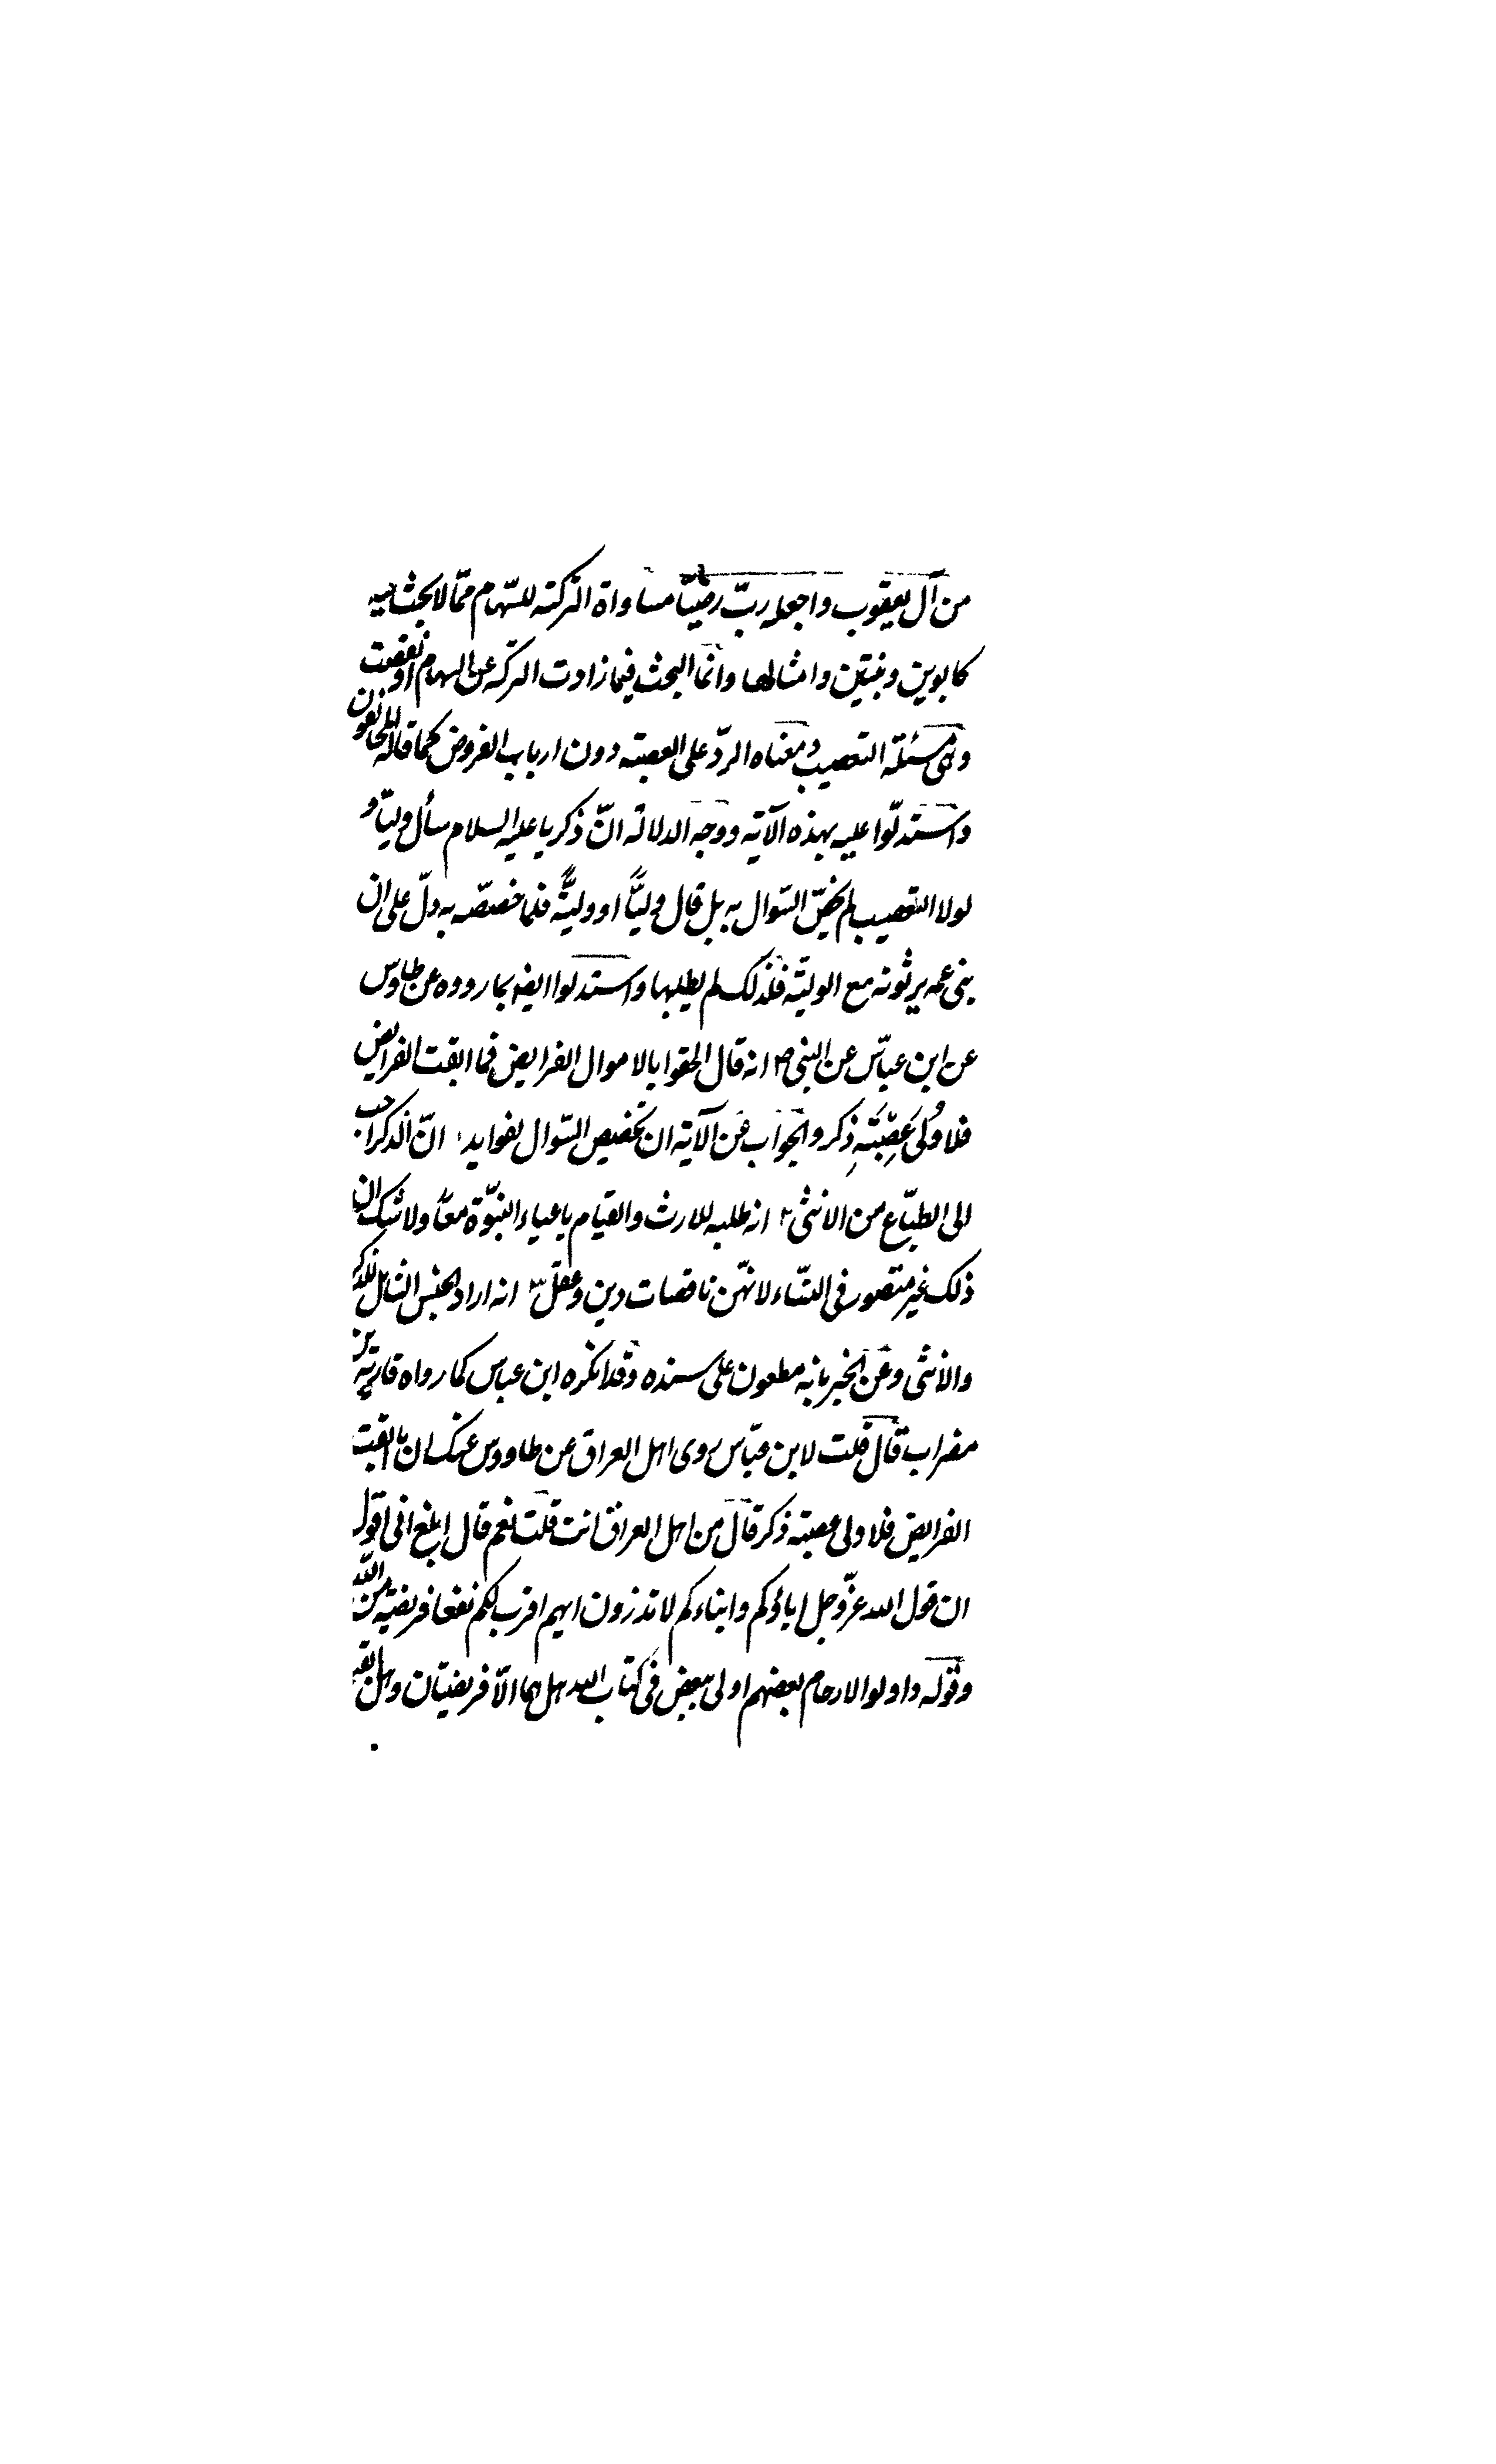 من آل يعقوب واجعله ربّ رضيّا مساواة التركة للسّهام ممّا لا بحث فيه
كابوين وبنتين وامثالها وانّما البحث فيما زادت التركة عن السهام او نقصت
وهى مسئلة التعصيب ومعناه الردّ على العصبة دون ارباب الفروض كما قاله المخالفون
واستدلّوا عليه بهذه الآية ووجه الدلالة انّ زكريا عليه السلام سأل وليّا و
لولا التعصيب لم يخصّ السّوال به بل قال وليًّا او وليّةً فلما خصصّه به دلّ على ان
بنى عمه يرثونه مع الوليّة فلذلك لم يطلبها واستدلوا ايضا بما رووه عن طاوس
عن ابن عبّاس عن النبى ص انه قال الحقوا بالاموال الفرايض فما ابقت الفرايض
فلاولى عَصَبَةِ ذكر والجواب عن الآية ان تخصيص السّوال لفوايد ١ انّ الذكر احب
الى الطبّاع من الانثى ٢ انه طلبه للارث والقيام باعباء النبوّة معًا ولا شك ان
ذلك غير متصور فى النسّاء لانهّن ناقصات دين وعقل ٣ انه اراد الجنس الشامل للذكر
والانثى وعن الخبر بانه مطعون على سنده وقد انكره ابن عباس كما رواه قارية بن
مضراب قال قلت لابن عبّاس روى اهل العراق عن طاووس عنك ان ما ابقت
الفرايض فلاولى عصبة ذكر قال من اهل العراق انت قلت نعم قال ابلغ انى اقول
ان قول الله عزّ وجل اباؤكم وابناءكم لا تدرون ايهم اقرب لكم نفعا فريضة من الله
وقوله واولوا الارحام بعضهم اولى ببعض فى كتاب الله هل هما الّا فريضتان وهل ابقتا